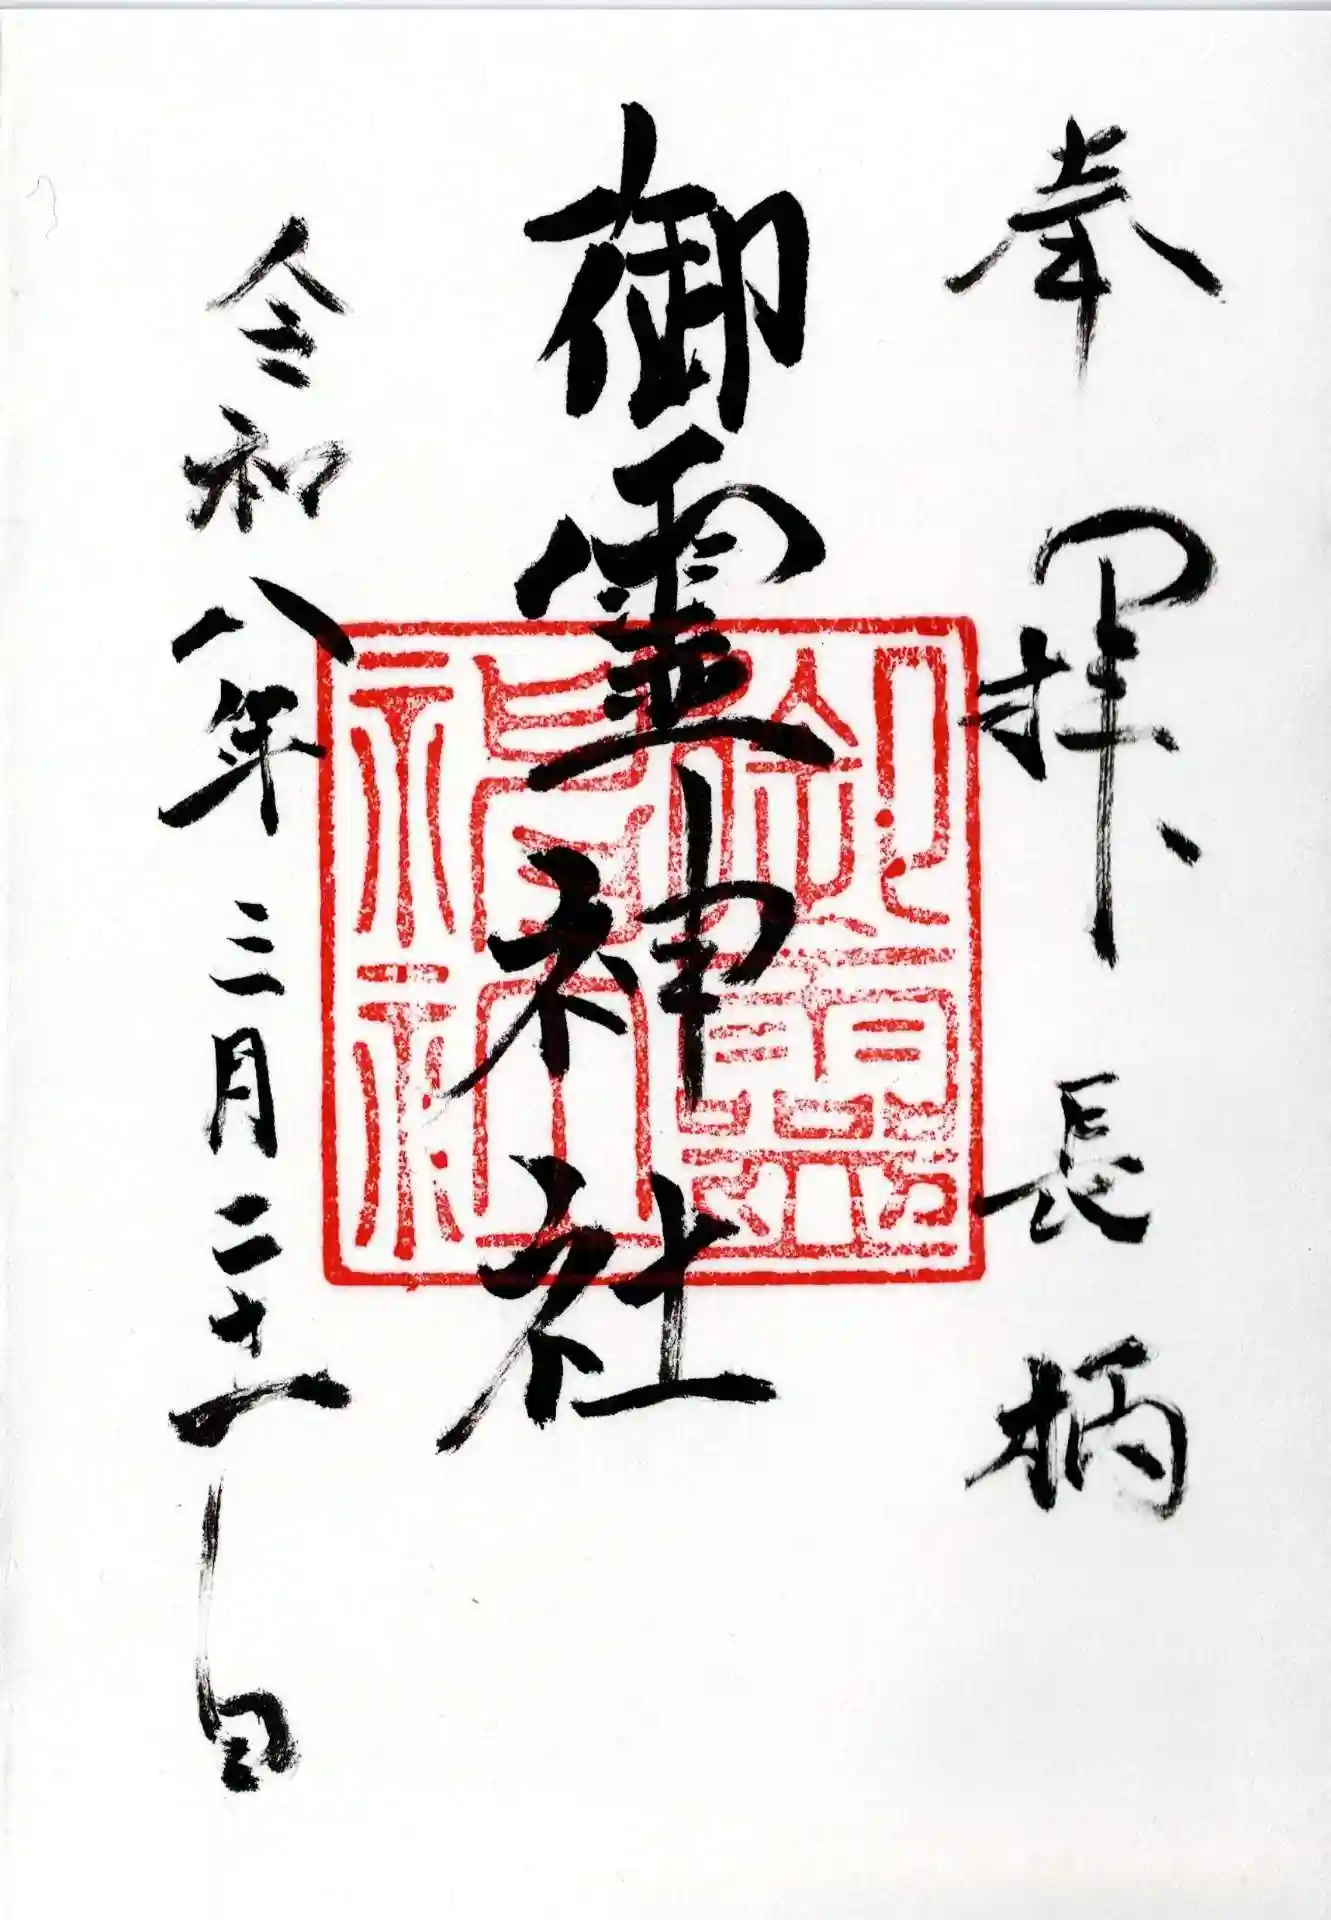 奉拝 長柄
御霊神社
令和八年三月二十一日